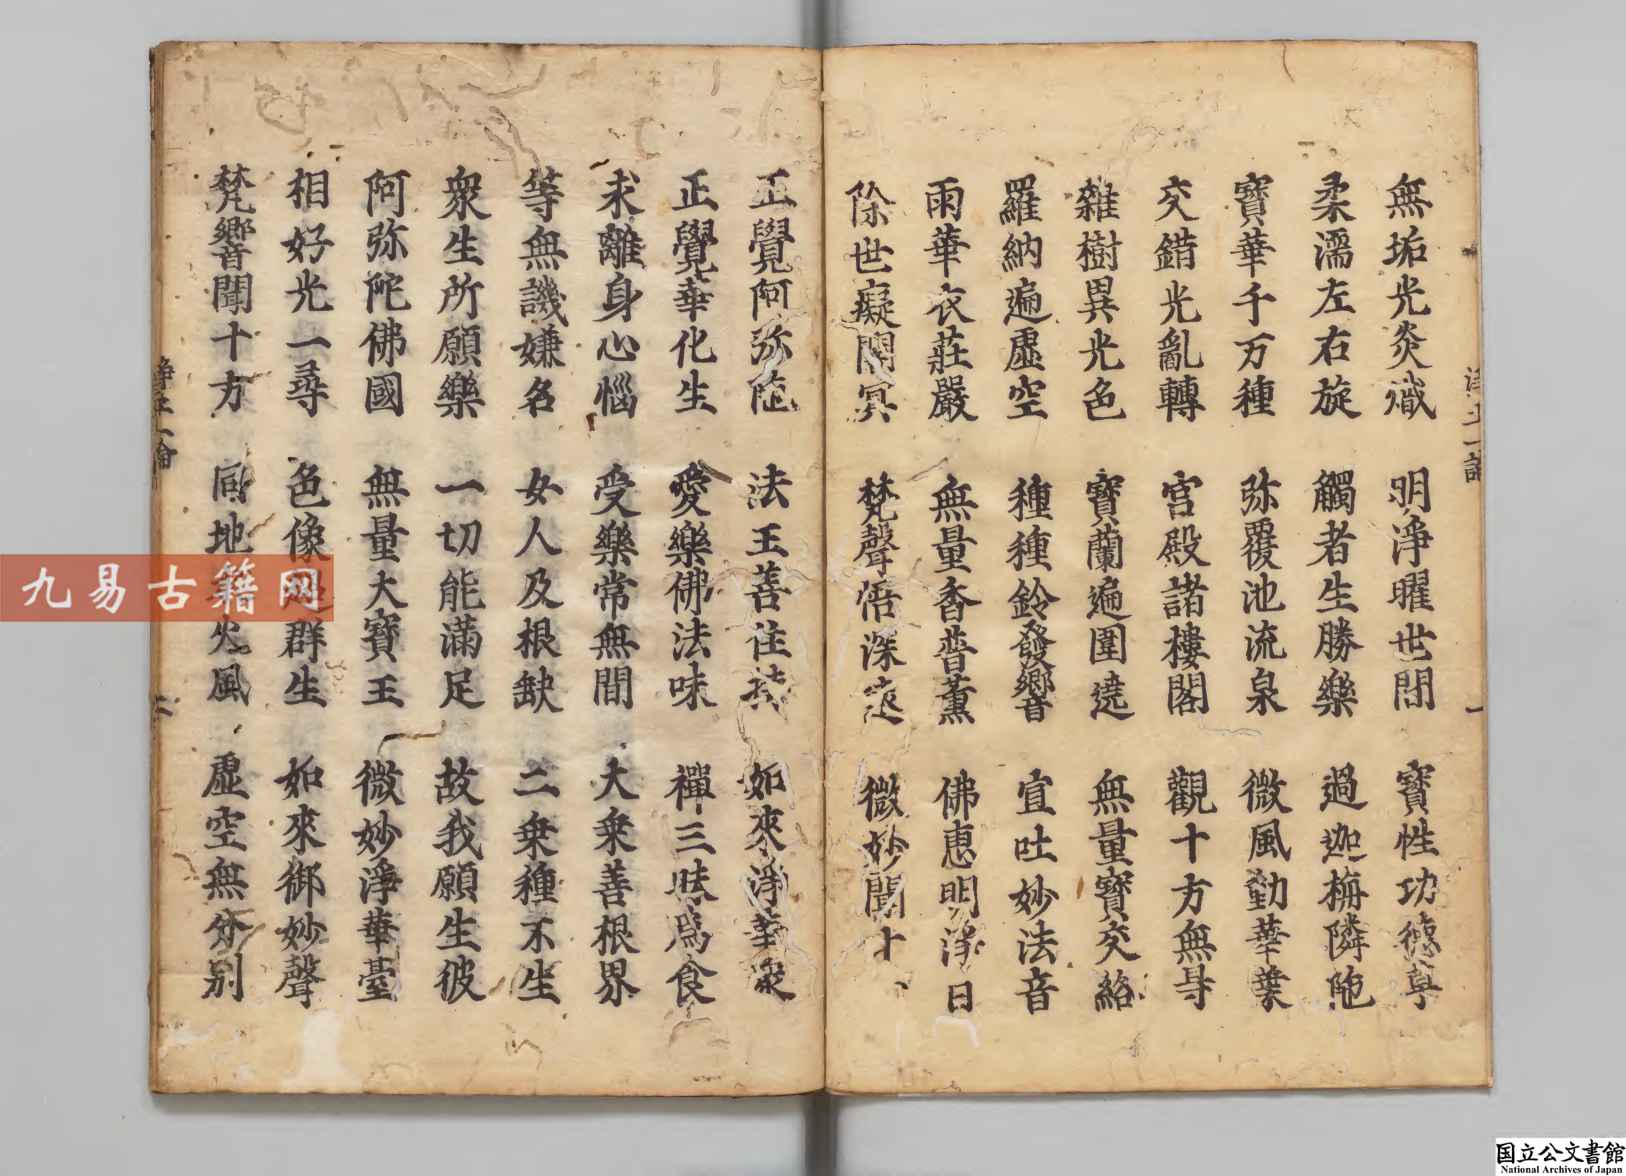 無垢光炎熾 明淨曜世間 寶性功德草
柔濡左右旋 觸者生勝樂 過迦栴隣陀
寶華千万種 弥覆池流泉 微風動華葉
交錯光亂轉 宮殿諸樓閣 觀十方無㝵
雜樹異光色 寶蘭遍圍遶 無量寶交絡
羅納遍虛空 種種鈴發響 宣吐妙法音
雨華衣莊嚴 無量香普薰 佛惠明淨日
除世癡闇冥 梵聲悟深遠 微妙聞十
正覺阿弥陀 法王善住持 如來淨華衆
正覺華化生 愛樂佛法味 禪三昧爲食
求離身心惱 受樂常無間 大乘善根界
等無譏嫌名 女人及根缺 二乘種不生
衆生所願樂 一切能滿足 故我願生彼
阿弥陀佛國 無量大寶王 微妙淨華臺
相好光一尋 色像超群生 如來御妙聲
梵響聞十方 同地水火風 虛空無分別
淨土論
九易古籍网
国立公文書館
National Archives of Japan